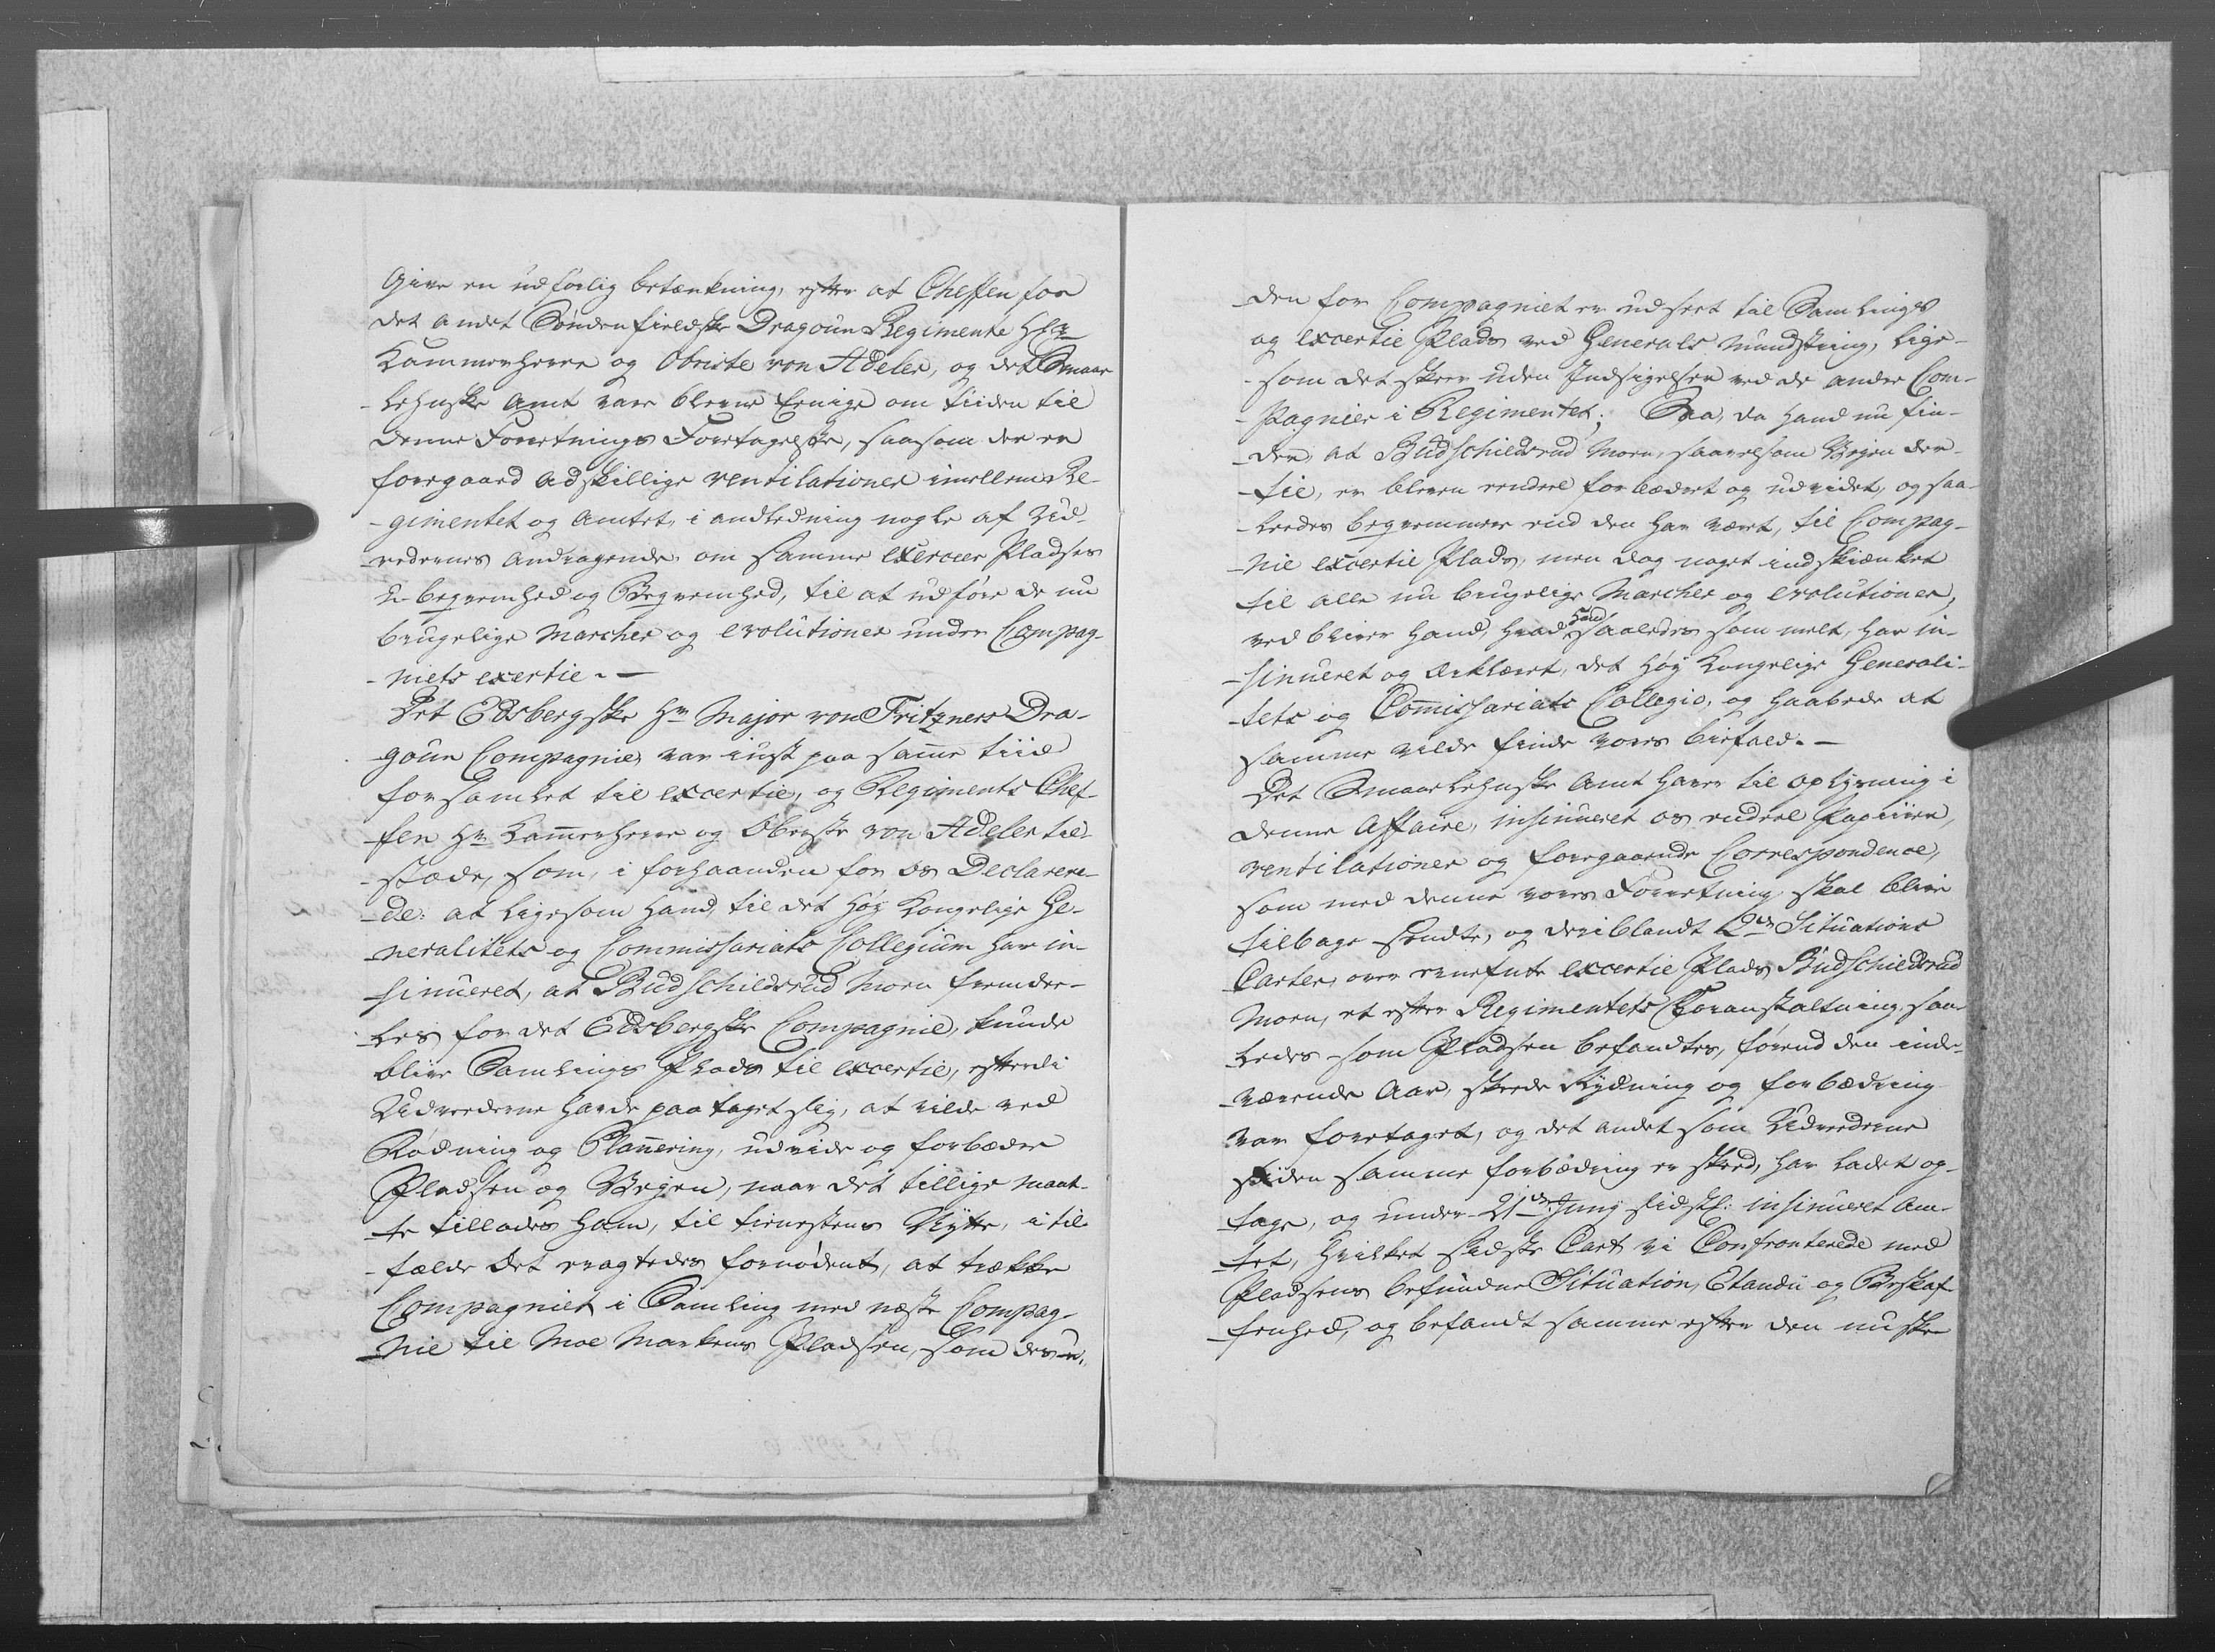 Give en udførlig betænkning, efter at Cheffen for
det andet Søndenfieldske Dragoun Regimente Hr
Kammerherre og Obriste von Adeler, og det Smaae
-lehnske Amt vare blevne Eenige om tiiden til
denne Forretnings Foretagelse, saasom der er
forregaaed adskillige ventilationer imellem Re-
-gimentet og Amtet, i andledning nogle af Udd-
-rederenes andragende om samme Exerceer Pladses
U-beqvemhed og Beqvemhed, til at udføre de nu
brugelige Marcher og evolutioner under Compag-
-niets exertie. -
Det Edsbergske Hr Major von Fritzners Dra-
goun Compagnie var iust paa samme tiid
forsamlet til excertie, og Regiments Chef-
fen Hr Kammerherre og Obriste von Adeler til-
-stæde, som, i forhaanden for os Declarere-
-de: at ligesom Hand, til det Høy Kongelige Ge-
-neralitets og Commissariats Collegium har in-
-sinueret, at Budschildsrud Moen fremde-
-les for det Edsbergske Compagnie, kunde
blive Samlings Plads til excertie, efterdi
Udrederne havde paataget sig, at vilde ved
Rødning og Planering, udvide og forbædre
Pladsen og Vejen, naar det tillige maat-
-te tillades ham, til tienestens Nytte, i til-
-fælde det eragtedes fornødent, at trække
Compagniet i Samling med næste Compag-
nie til Moe Markens Pladsen, som desu-
den for Compagniet er udseet til Samlings
og excertie Plads ved Generals Mundstring, lige-
-som det skeer uden Indsigelser ved de andre Com-
-pagnier i Regimentet; Saa, da Hand nu fin-
-der, at Budschildsrud Moen, saavelsom Vejen der-
-til, er bleven endeel forbædret og udvidet, og saa-
-leedes beqvemmere end den har været, til Compag-
-nie excertie Plads, men dog noget indskrænket
til alle nu brugelige Marcher og evolutioner,
ved bliver Hand, hvad Hand saaledes som melt, har in-
-sinueret og erklæret, det Høy Kongelige Generali-
-tets og Commissariats Collegio, og haabede at
samme vilde finde vores biefald. -
Det Smaalehnske Amt haver til oplysning i
denne Affaire, insinueret os endeel Papiirer,
ventilationer og foregaaende Correspondence,
som med denne vores Forretning skal blive
tilbage sendte, og deriblandt 2de Situations
Carter, over renefnte excertie Plads Budschildsrud
Moen, et efter Regimentets Foranstaltning saa-
ledes som Pladsen befandtes, førend den inde-
-værende Aar, skeede Rydning og forbædring
var foretaget, og det andet som Udrederne
siden samme forbædring er skeed, har ladet op-
-tage, og under 21de Juny sidstl: insinueret Am-
-tet, hvilket sidste Cart vi Confronterede med
Pladsens befundne Situation, Etandu og Beskaf-
-fenhed, og befandt samme efter den nu skee